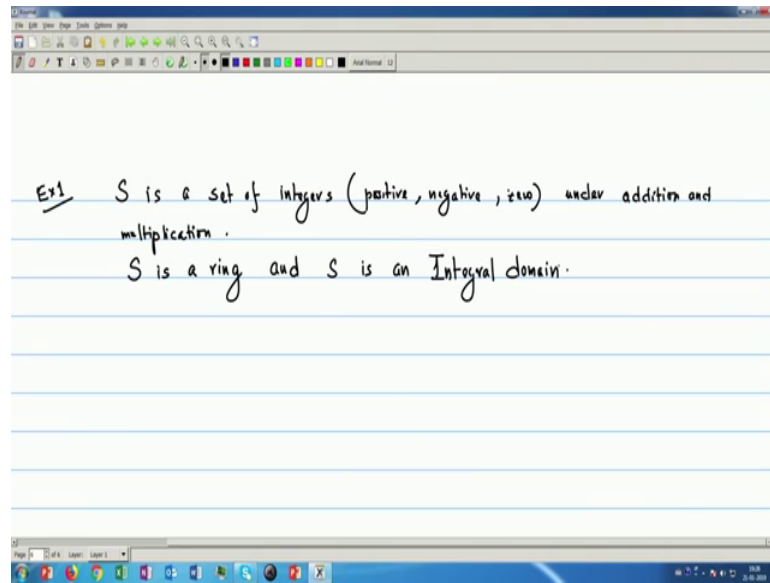 Journal
File Edit View Page Tools Options Help
Arial Normal 12
Ex1 S is a set of integers (positive, negative, zero) under addition and
multiplication.
S is a ring and S is an Integral domain.
Page of 6 Layer: Layer 1